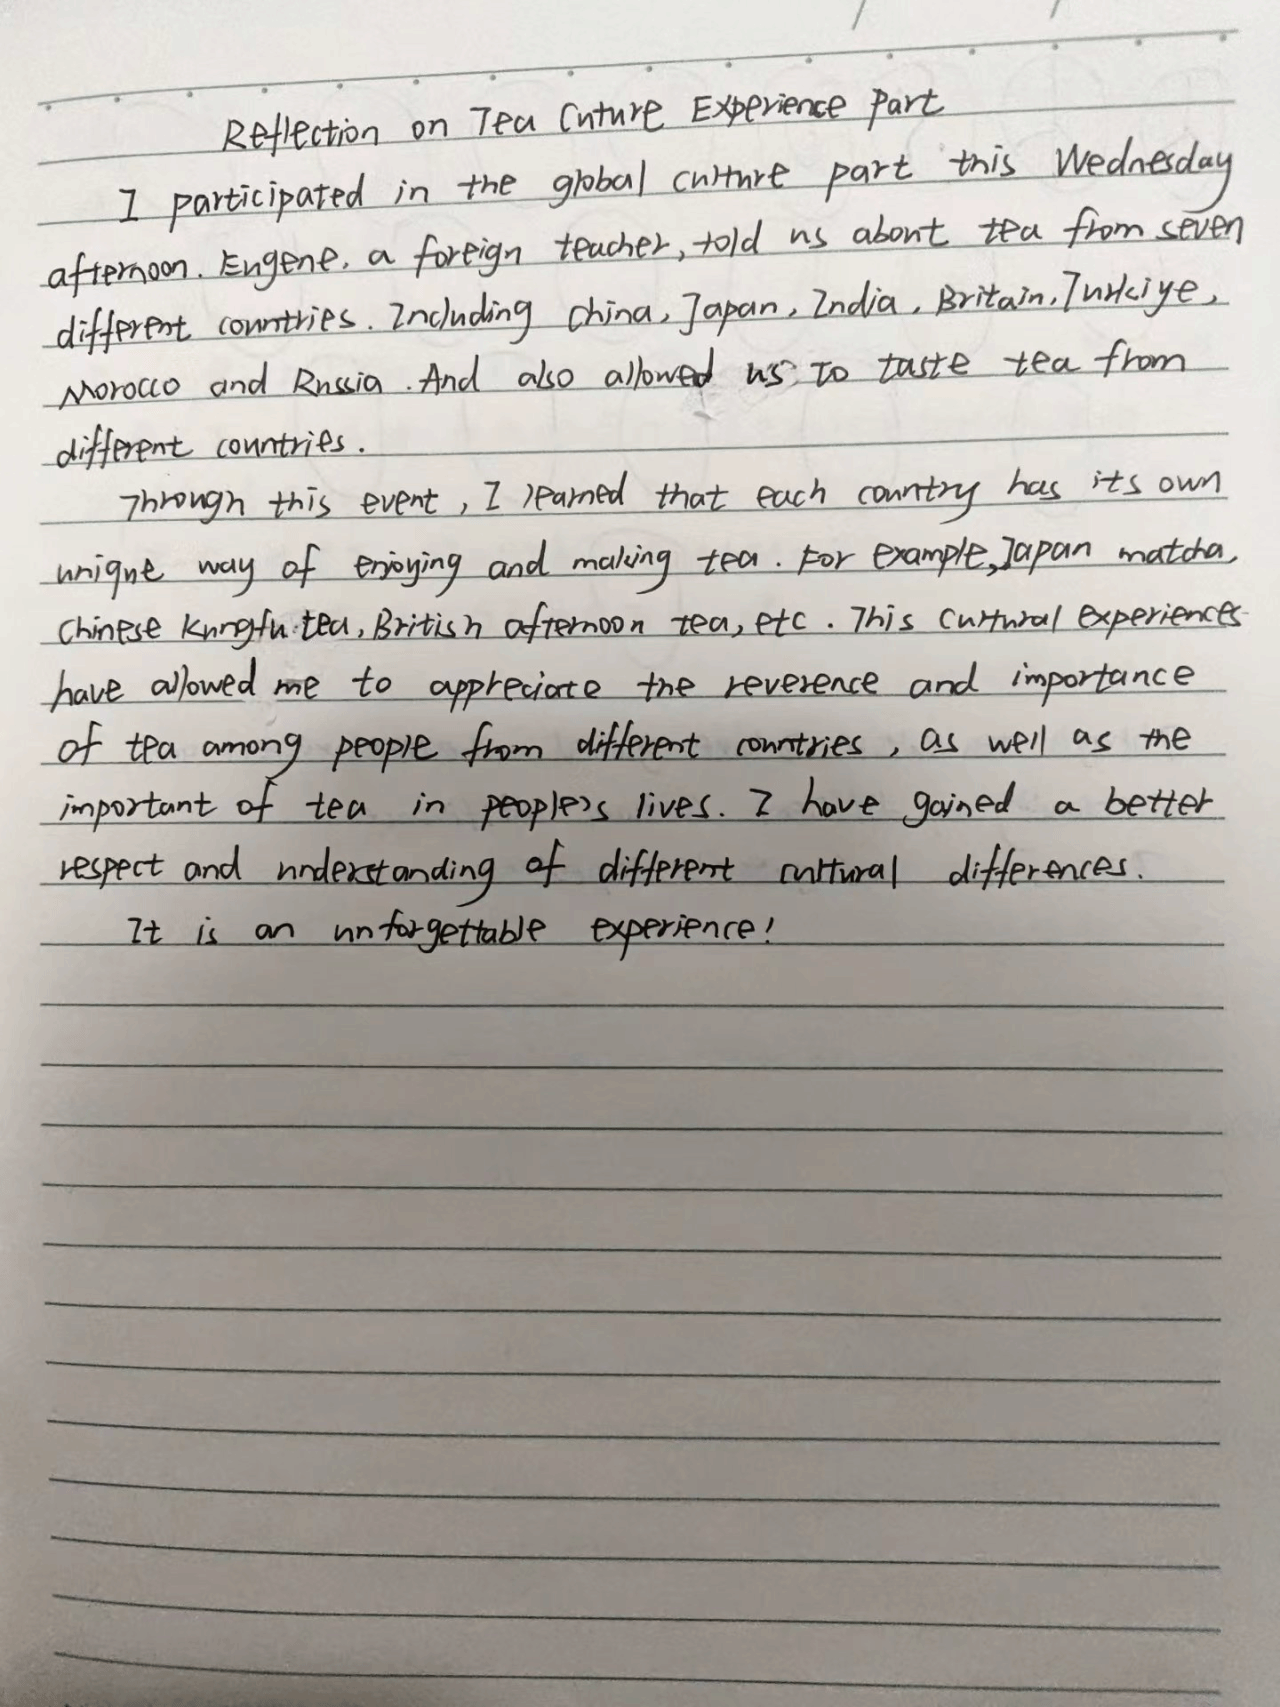 Reflection on Tea Cuture Experience Part
I participated in the global culture part this Wednesday
afternoon. Eugene, a foreign teacher, told us about tea from seven
different countries. Including China, Japan, India, Britain, Turkiye,
Morocco and Russia. And also allowed us to taste tea from
different countries.
Through this event, I learned that each country has its own
unique way of enjoying and making tea. For example, Japan matcha,
Chinese Kungfu tea, British afternoon tea, etc. This cultural experiences
have allowed me to appreciate the reverence and importance
of tea among people from different countries, as well as the
important of tea in people's lives. I have gained a better
respect and understanding of different cultural differences.
It is an unforgettable experience!